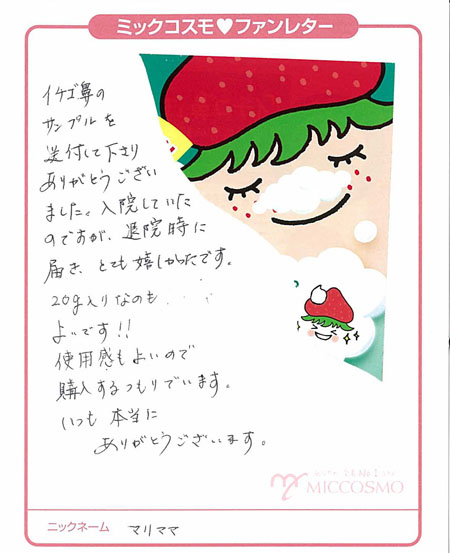 ミックコスモ♥ファンレター
イチゴ鼻の
サンプルを
送付して下さり
ありがとうござい
ました。入院していた
のですが、退院時に
届き、とても嬉しかったです。
20g入りなのも
よいです!!
使用感もよいので
購入するつもりでいます。
いつも本当に
ありがとうございます。
MICCOSMO
ニックネーム マリママ